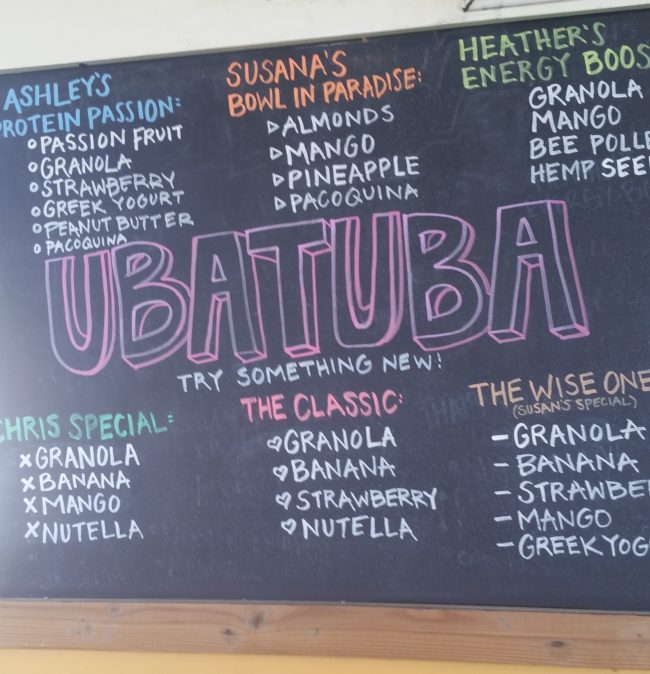 ASHLEY'S
PROTEIN PASSION:
PASSION FRUIT
GRANOLA
STRAWBERRY
GREEK YOGURT
PEANUT BUTTER
PACOQUINA
SUSANA'S
BOWL IN PARADISE:
ALMONDS
MANGO
PINEAPPLE
PACOQUINA
HEATHER'S
ENERGY BOOS
GRANOLA
MANGO
BEE POLLE
HEMP SEE
UBATUBA
TRY SOMETHING NEW!
CHRIS SPECIAL:
x GRANOLA
x BANANA
x MANGO
x NUTELLA
THE CLASSIC:
♡ GRANOLA
♡ BANANA
♡ STRAWBERRY
♡ NUTELLA
THE WISE ONE
(SUSAN'S SPECIAL)
- GRANOLA
- BANANA
- STRAWBE
- MANGO
- GREEK YOG